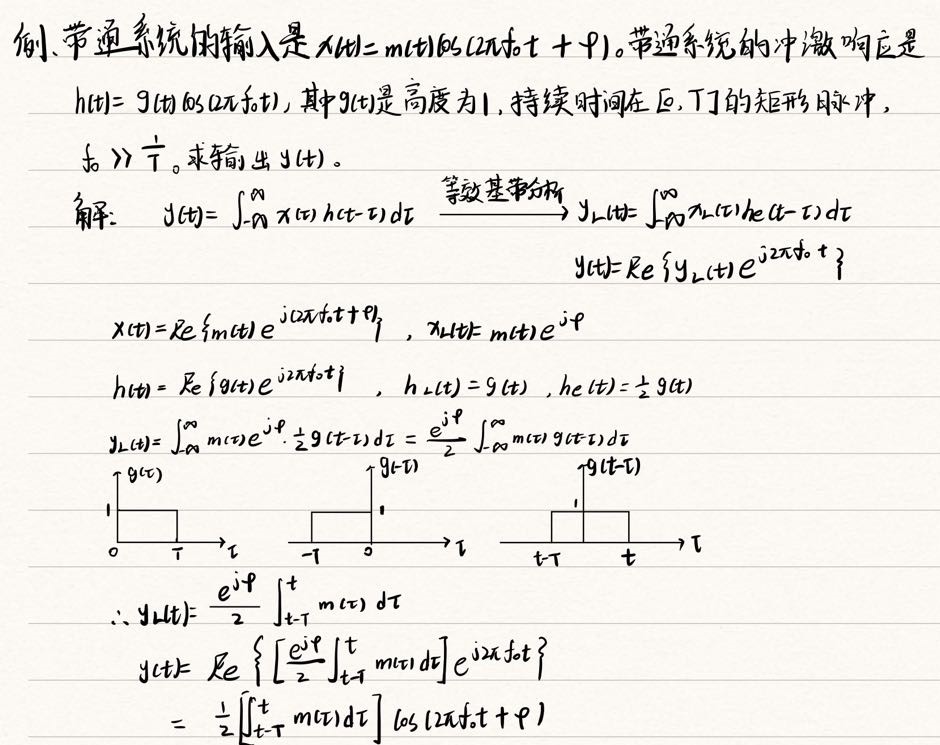 例、带通系统的输入是 x(t)= m(t)cos(2πf₀t + φ)。带通系统的冲激响应是
h(t)= g(t)cos(2πf₀t), 其中g(t)是高度为1, 持续时间在[0,T]的矩形脉冲,
f₀ >> 1/T。求输出 y(t)。
解: y(t)= ∫_{-∞}^{∞} x(τ)h(t-τ)dτ 等效基带分析→ y_L(t)= ∫_{-∞}^{∞} x_L(τ)h_e(t-τ)dτ
y(t)=Re{y_L(t)e^{j2πf₀t}}
x(t)=Re{m(t)e^{j(2πf₀t+φ)}} , x_L(t)= m(t)e^{jφ}
h(t)= Re{g(t)e^{j2πf₀t}} , h_L(t)=g(t) , h_e(t)=1/2 g(t)
y_L(t)= ∫_{-∞}^{∞} m(τ)e^{jφ}·1/2 g(t-τ)dτ = e^{jφ}/2 ∫_{-∞}^{∞} m(τ)g(t-τ)dτ
g(τ) g(-τ) g(t-τ)
1 1 1
0 T τ -T 0 τ t-T t τ
∴ y_L(t)= e^{jφ}/2 ∫_{t-T}^{t} m(τ) dτ
y(t)= Re{[e^{jφ}/2 ∫_{t-T}^{t} m(τ)dτ]e^{j2πf₀t}}
= 1/2[∫_{t-T}^{t} m(τ)dτ] cos(2πf₀t+φ)